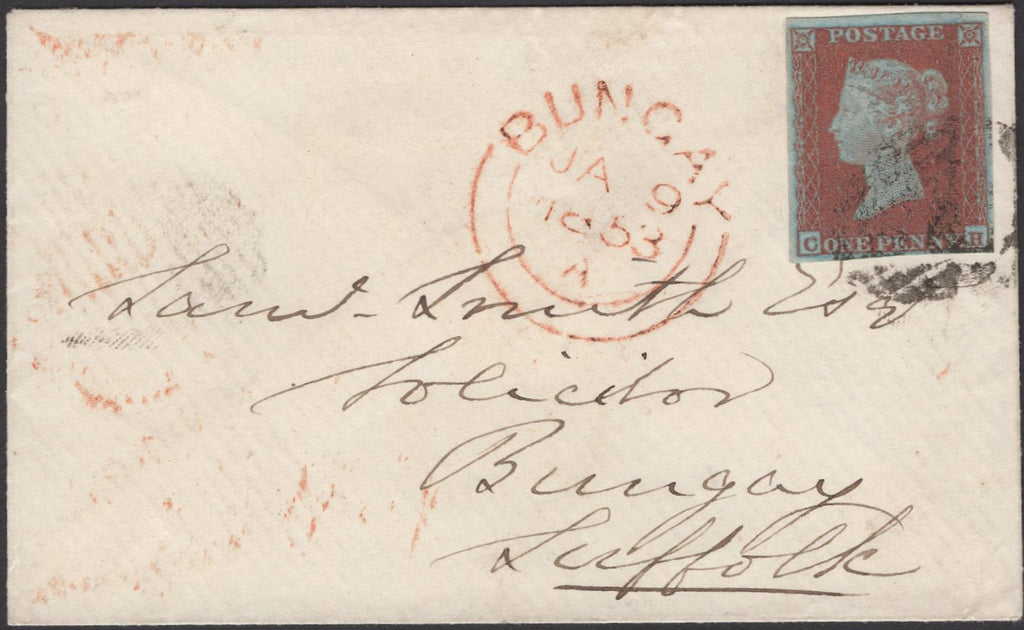 POSTAGE
C ONE PENNY H
BUNGAY
JA 9
1853
A
Saml. Smith Esqr
Solicitor
Bungay
Suffolk